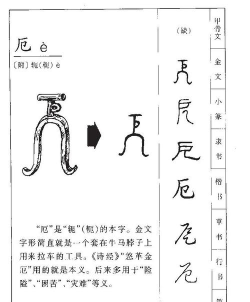 厄 è
[附] 轭(軛) è
“厄”是“轭”(軛)的本字。金文
字形简直就是一个套在牛马脖子上
用来拉车的工具。《诗经》“鞗革金
厄”用的就是本义。后来多用于“险
隘”、“困苦”、“灾难”等义。
(缺)
甲骨文
金文
小篆
隶书
楷书
草书
行书